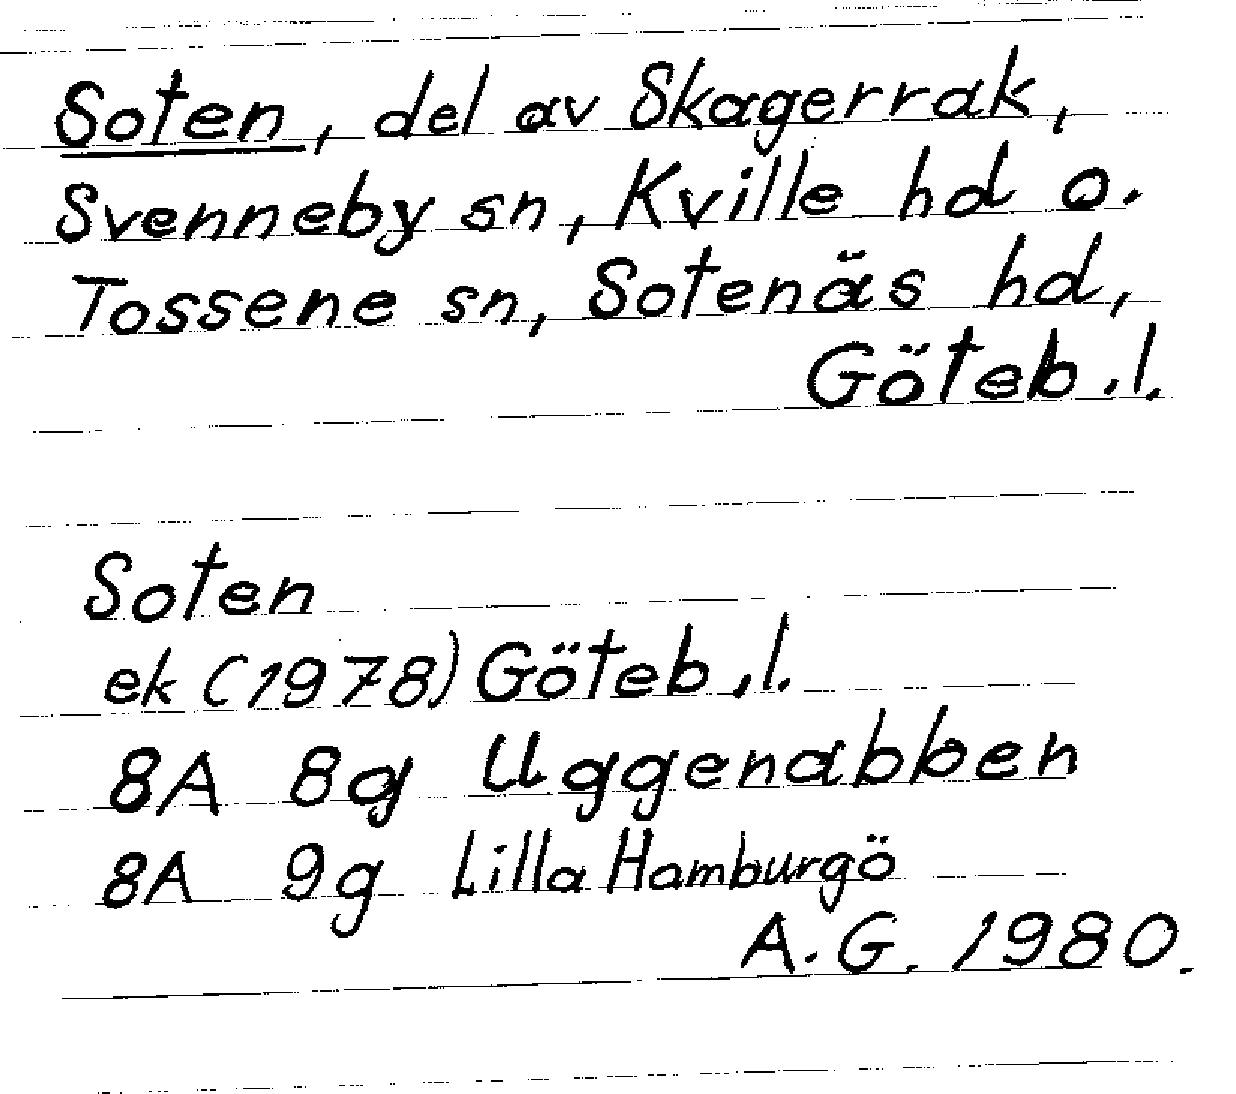 Soten, del av Skagerrak,
Svenneby sn, Kville hd o.
Tossene sn, Sotenäs hd,
Göteb.l.
Soten
ek (1978) Göteb.l.
8A 8g Uggenabben
8A 9g Lilla Hamburgö
A.G. 1980.